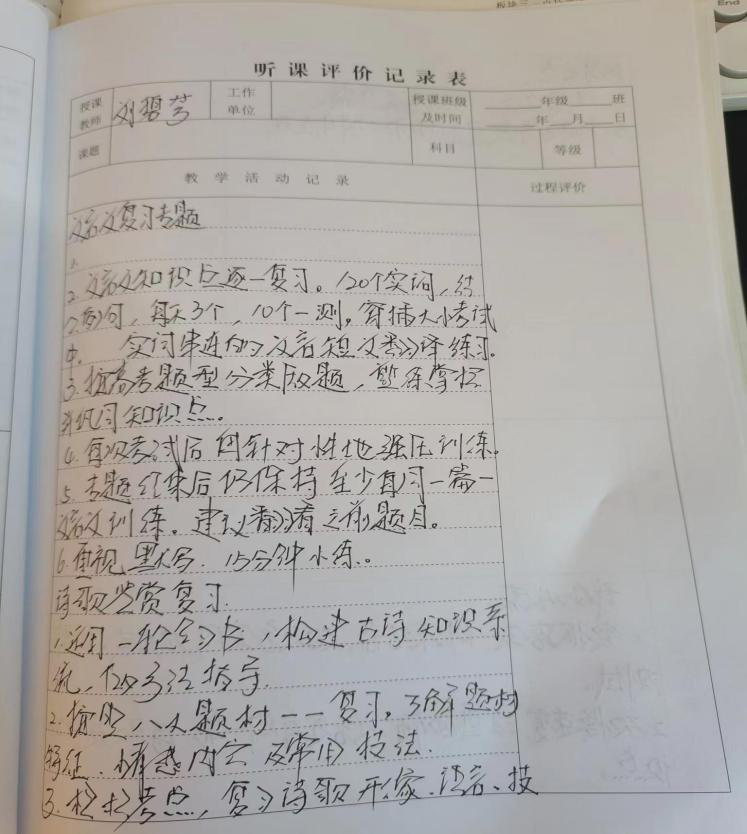 End
听课评价记录表
授课教师 刘碧芳 工作单位 授课班级及时间 年级 班 年 月 日
课题 科目 等级
教学活动记录 过程评价
文言文复习专题
1.
2. 文言文知识点逐一复习。120个实词,结
句,每天3个,10个一测。穿插大小考试
中。 实词串连的文言短文翻译练习。
3. 按高考题型分类版题,整练掌控
并巩固知识点。
4. 每次考试后再针对性地强压训练。
5. 专题结束后仍保持至少每周一篇一
文言文训练。建议翻看之前题目。
6. 重视默写. 15分钟小练。
诗歌鉴赏复习.
1. 选用一轮复习书,构建古诗知识系
统,做方法指导.
2. 按照八大题材一一复习。了解题材
特征、情感内容及常用技法.
3. 根据考点,复习诗歌形象、语言、技